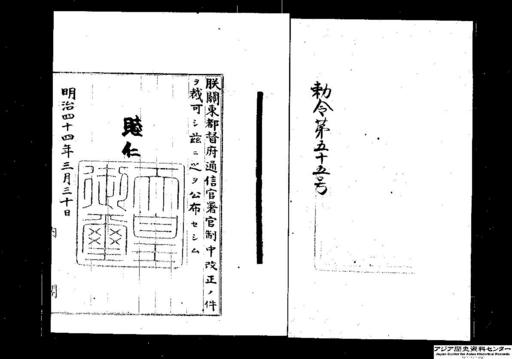 勅令第五十五号
朕關東都督府通信官署官制中改正ノ件
ヲ裁可シ茲ニ之ヲ公布セシム
睦仁
天皇御璽
明治四十四年三月三十日
内
閣
アジア歴史資料センター
Japan Center for Asian Historical Records